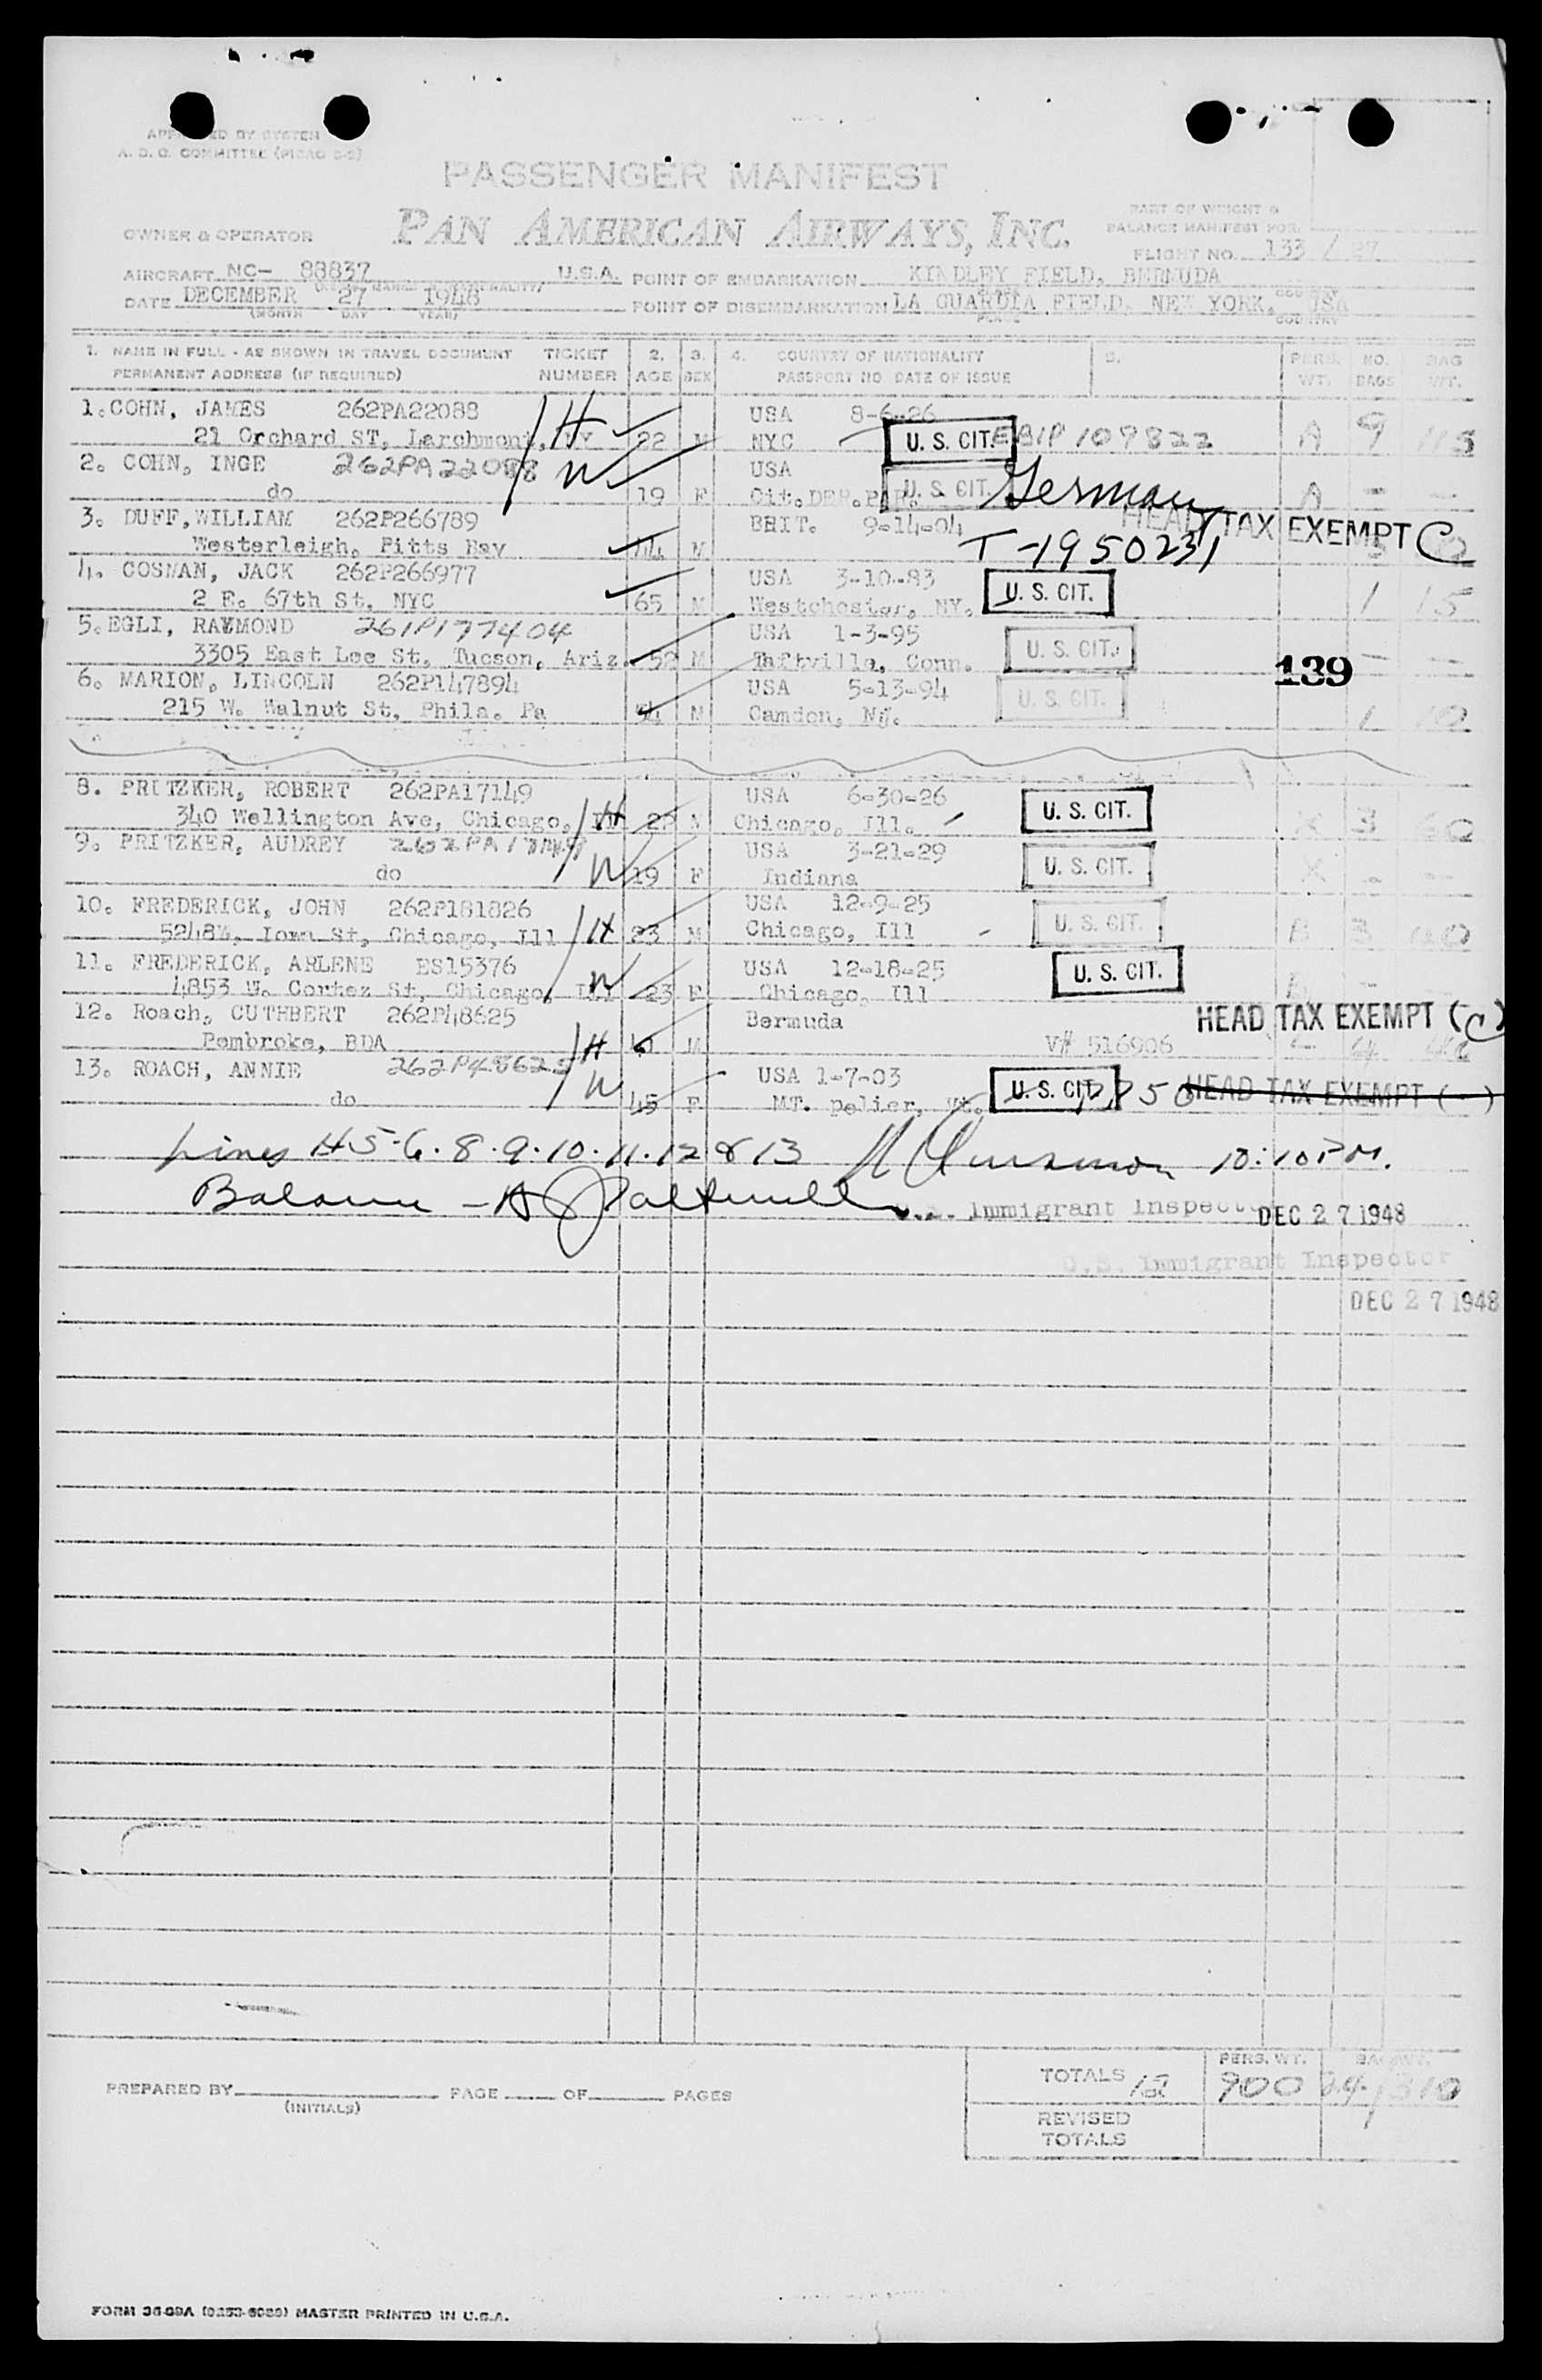 A. D. C. COMMITTEE (PICAO 2-2)
PASSENGER MANIFEST
PAN AMERICAN AIRWAYS, INC.
OWNER & OPERATOR
PART OF WEIGHT &
BALANCE MANIFEST FOR:
FLIGHT NO. 133 / 27
AIRCRAFT NC- 88837 U.S.A. POINT OF EMBARKATION KINDLEY FIELD, BERMUDA
DATE DECEMBER 27 1948 POINT OF DISEMBARKATION LA GUARDIA FIELD, NEW YORK, USA
(MONTH DAY YEAR) PLACE COUNTRY
1. NAME IN FULL - AS SHOWN IN TRAVEL DOCUMENT TICKET 2. 3. 4. COUNTRY OF NATIONALITY 5. PERS. NO. BAG
PERMANENT ADDRESS (IF REQUIRED) NUMBER AGE SEX PASSPORT NO DATE OF ISSUE WT. BAGS WT.
1. COHN, JAMES 262PA22088 USA 8-6-26
21 Orchard ST, Larchmont, NY H 22 M NYC U. S. CIT. 109822 A 9 115
2. COHN, INGE 262PA22088 W USA
do 19 F Cit. DER. PAR. U. S. CIT. German A - -
3. DUFF, WILLIAM 262P266789 BRIT. 9-14-04 HEAD TAX EXEMPT C
Westerleigh, Pitts Bay 44 M T-1950231
4. COSMAN, JACK 262P266977 USA 3-10-83
2 E. 67th St, NYC 65 M Westchester, NY. U. S. CIT. 1 15
5. EGLI, RAYMOND 261P177404 USA 1-3-95
3305 East Lee St, Tucson, Ariz. 52 M Taftville, Conn. U. S. CIT. 139 - -
6. MARION, LINCOLN 262P147894 USA 5-13-94
215 W. Walnut St, Phila. Pa 54 M Camden, NJ. U. S. CIT. 1 10
8. PRITZKER, ROBERT 262PA17149 USA 6-30-26
340 Wellington Ave, Chicago, Ill H 22 M Chicago, Ill. U. S. CIT. X 3 60
9. PRITZKER, AUDREY 262PA17149 USA 3-21-29
do W 19 F Indiana U. S. CIT. X - -
10. FREDERICK, JOHN 262P181826 USA 12-9-25
5248W, Iowa St, Chicago, Ill H 23 M Chicago, Ill U. S. CIT. B 3
11. FREDERICK, ARLENE ES15376 USA 12-18-25
4853 W. Cortez St, Chicago, Ill W 23 F Chicago, Ill U. S. CIT. B
12. Roach, CUTHBERT 262P48625 Bermuda HEAD TAX EXEMPT (C)
Pembroke, BDA H M V# 516906
13. ROACH, ANNIE 262P48625 USA 1-7-03
do W 45 F MT. pelier, Vt. U. S. CIT. HEAD TAX EXEMPT ( )
Lines 5-6.8.9.10.11.12 & 13 10:10 PM.
Balance -
U.S. Immigrant Inspector DEC 27 1948
U.S. Immigrant Inspector
DEC 27 1948
PREPARED BY PAGE OF PAGES
(INITIALS)
PERS. WT. BAG WT.
TOTALS 12 900 24 / 310
REVISED
TOTALS
FORM 36-39A (0253-6089) MASTER PRINTED IN U.S.A.